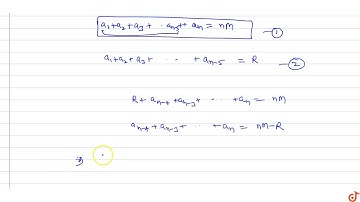 a₁+a₂+a₃+ ⋯ aₙ₅+ aₙ = nM —①
a₁+a₂+a₃+ ⋯ ⋯ +aₙ₋₅ = R. —②
R+ aₙ₋₄ +aₙ₋₃+ ⋯ +aₙ = nM
aₙ₋₄ +aₙ₋₃+ ⋯ +aₙ = nM-R
⇒